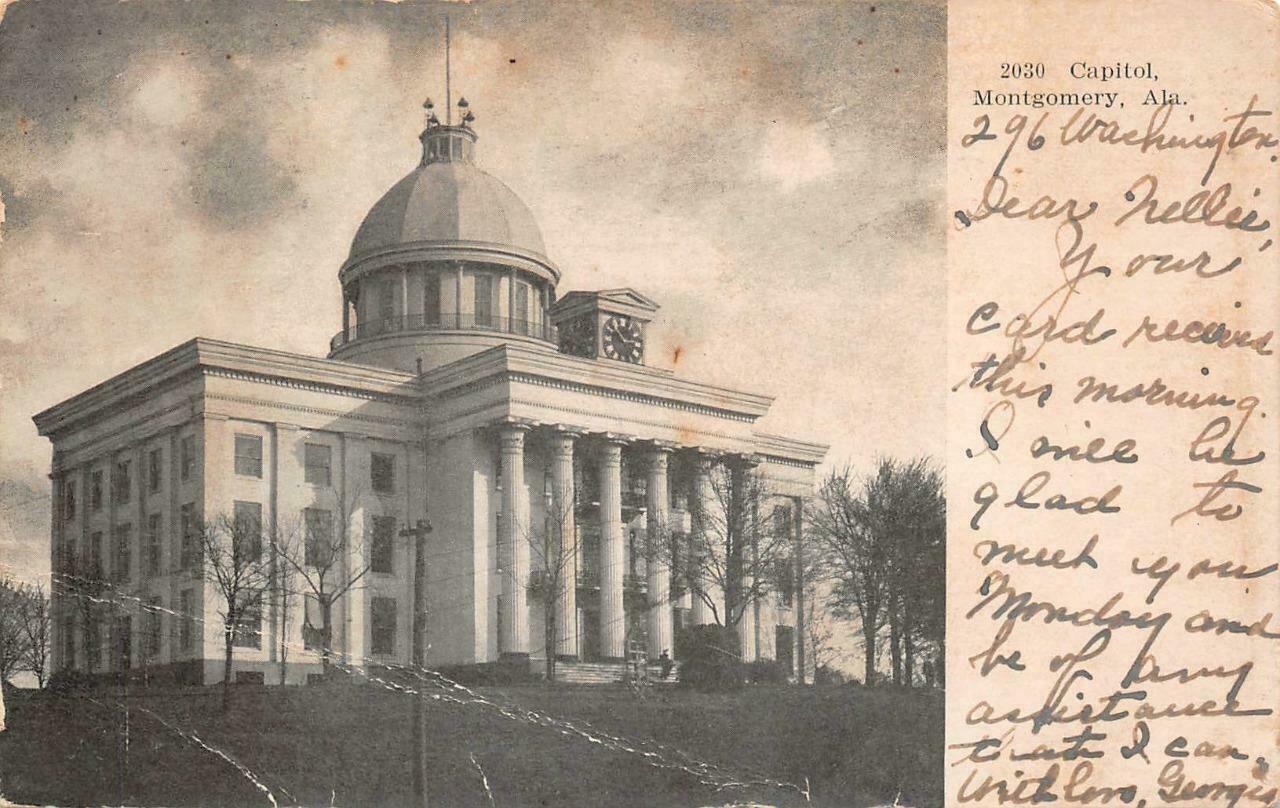 2030 Capitol,
Montgomery, Ala.
296 Washington.
Dear Nellie,
Your
card received
this morning.
I will be
glad to
meet you
Monday and
be of any
assistance
that I can.
With love, Georgia